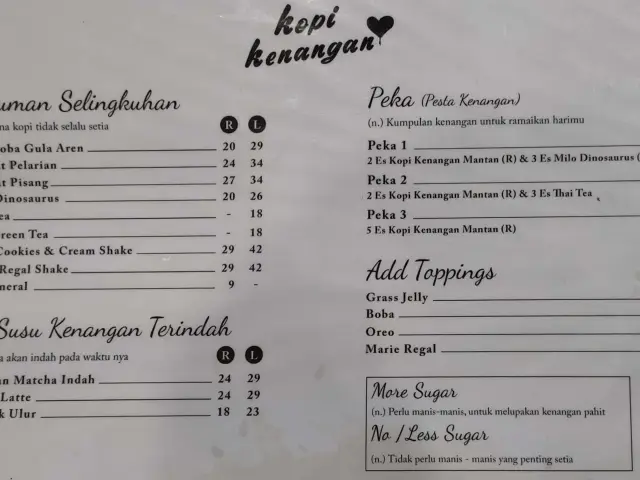 kopi
kenangan
uman Selingkuhan
na kopi tidak selalu setia
R L
oba Gula Aren 20 29
t Pelarian 24 34
t Pisang 27 34
Dinosaurus 20 26
ea - 18
reen Tea - 18
Cookies & Cream Shake 29 42
Regal Shake 29 42
neral 9 -
Susu Kenangan Terindah
a akan indah pada waktu nya
R L
an Matcha Indah 24 29
Latte 24 29
k Ulur 18 23
Peka (Pesta Kenangan)
(n.) Kumpulan kenangan untuk ramaikan harimu
Peka 1
2 Es Kopi Kenangan Mantan (R) & 3 Es Milo Dinosaurus (
Peka 2
2 Es Kopi Kenangan Mantan (R) & 3 Es Thai Tea
Peka 3
5 Es Kopi Kenangan Mantan (R)
Add Toppings
Grass Jelly
Boba
Oreo
Marie Regal
More Sugar
(n.) Perlu manis-manis, untuk melupakan kenangan pahit
No / Less Sugar
(n.) Tidak perlu manis - manis yang penting setia